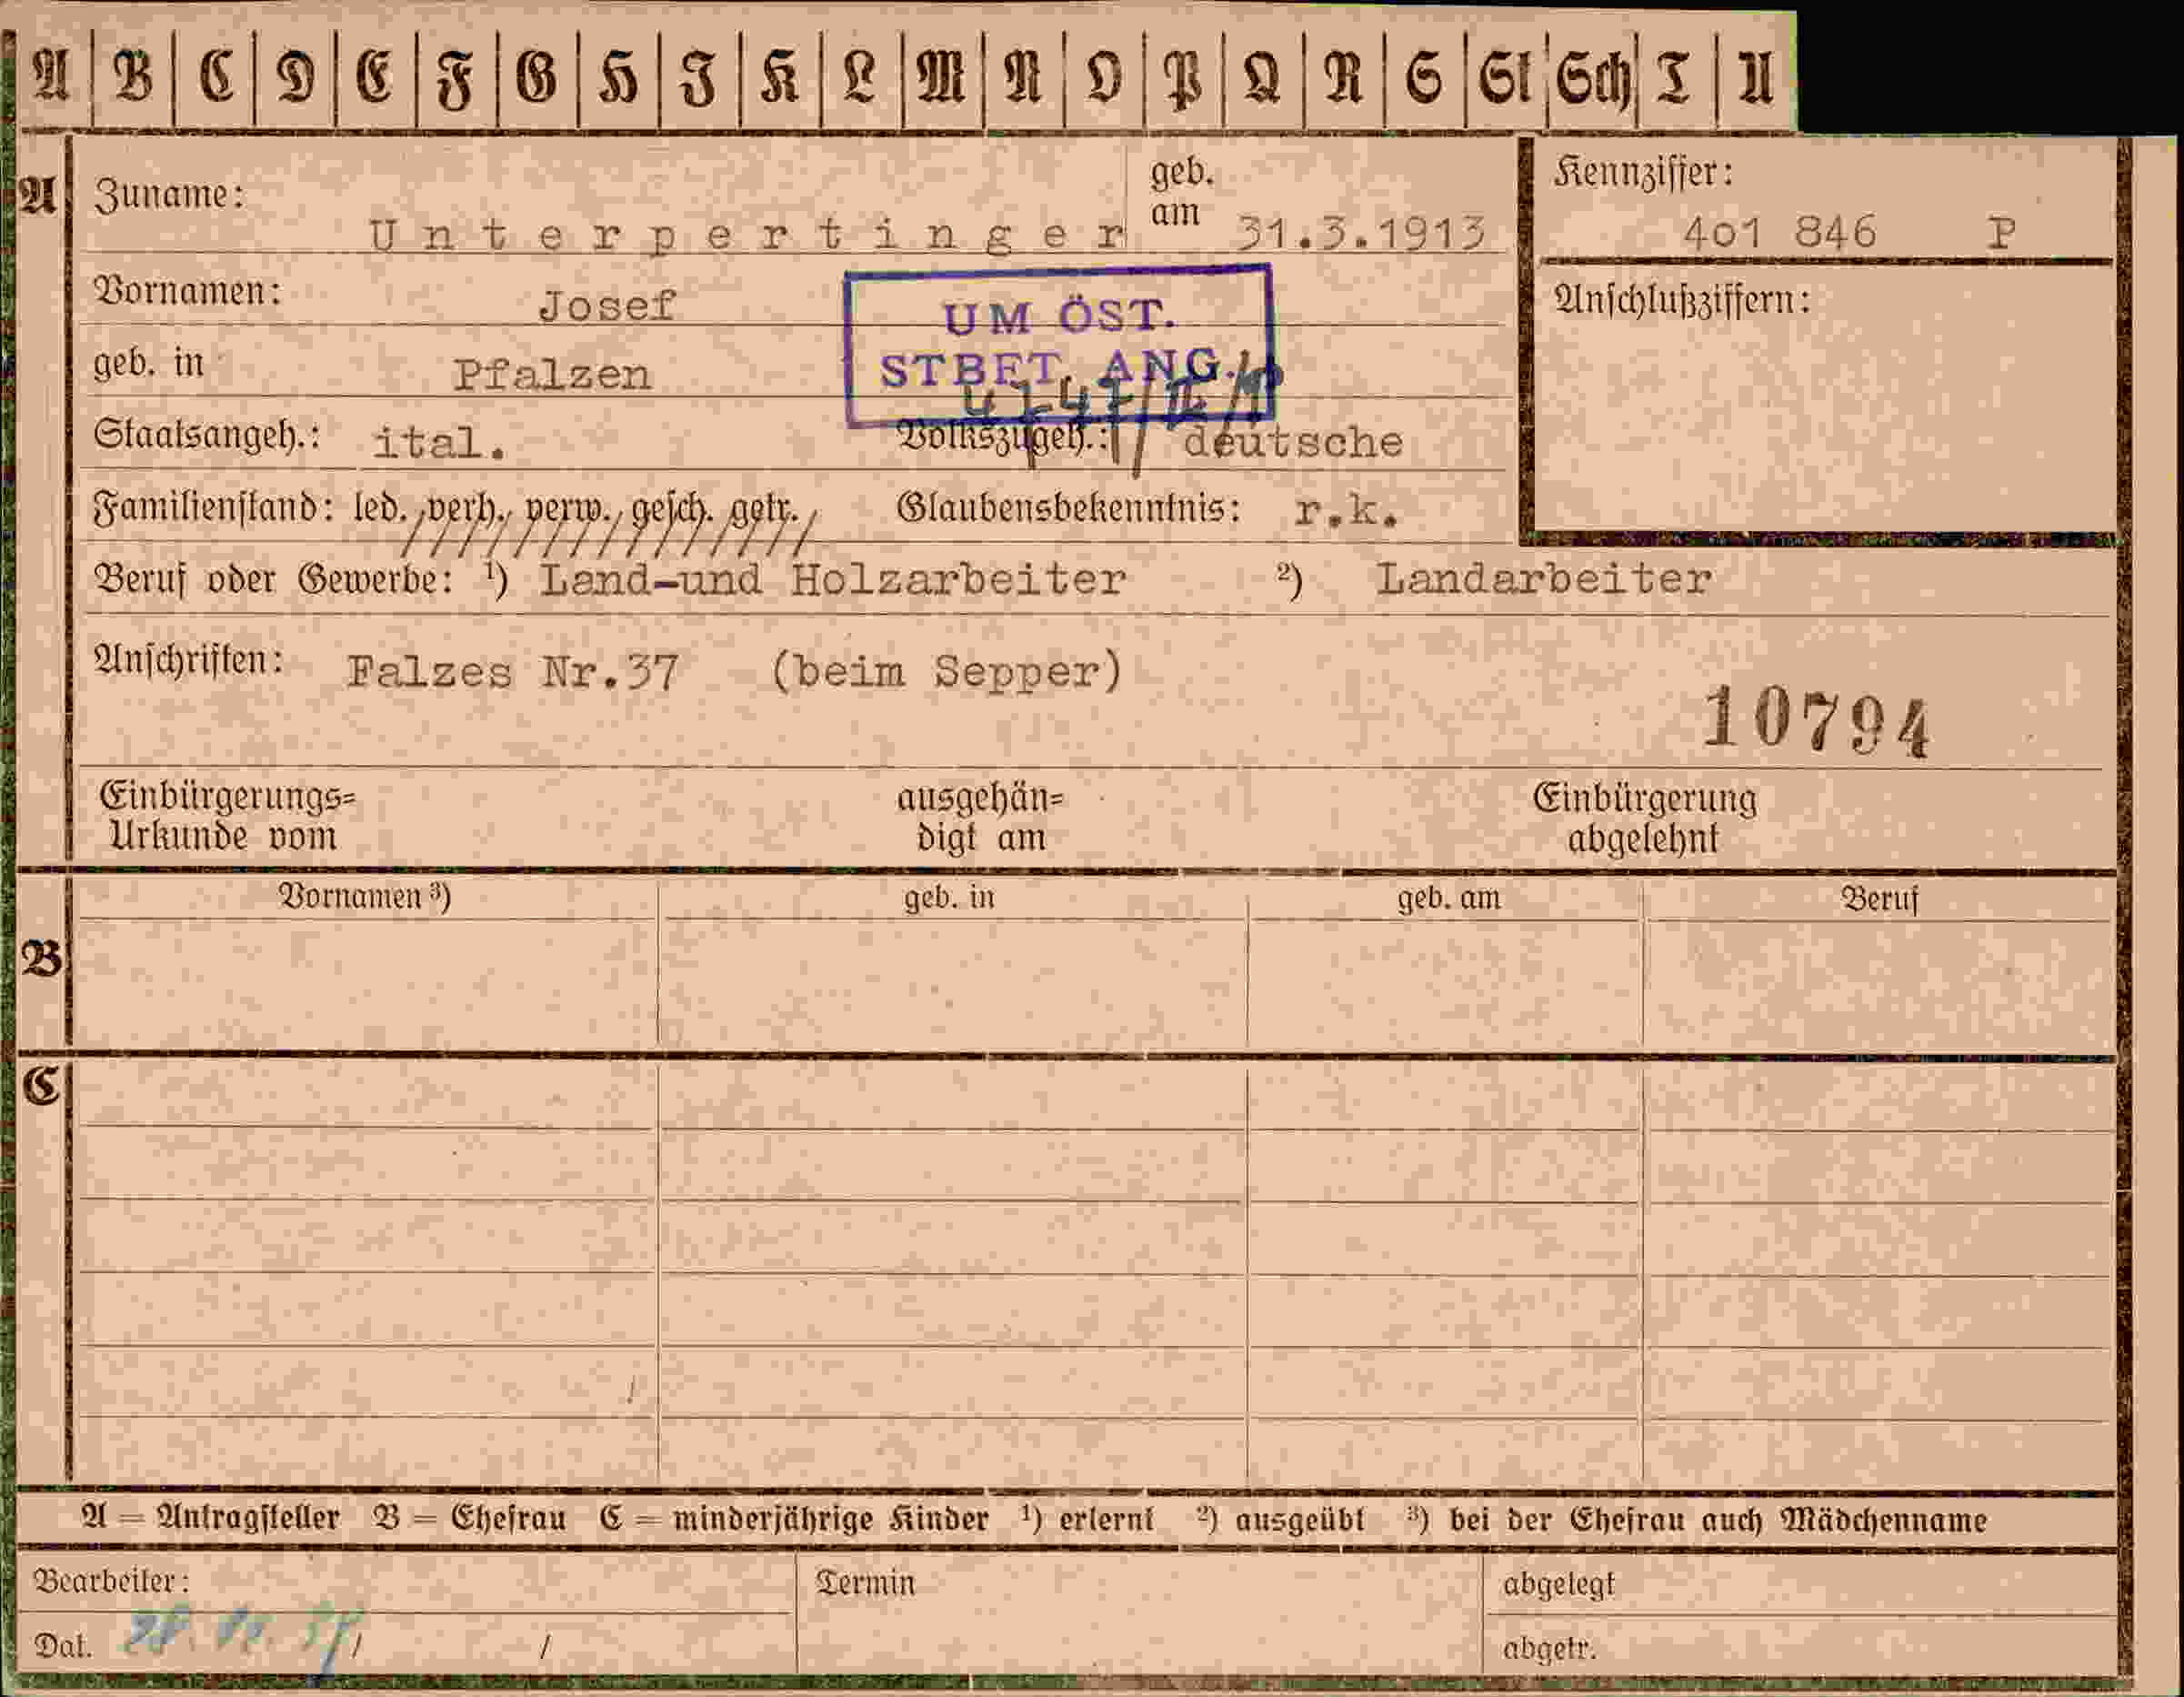 A B C D E F G H J K L M N O P Q R S St Sch T U
A Zuname: Unterpertinger geb. am 31.3.1913 Kennziffer: 401 846 P
Vornamen: Josef UM ÖST. Anschlußziffern:
geb. in Pfalzen STBET. ANG.
Staatsangeh.: ital. Volkszugeh.: deutsche
Familienstand: led. verh. verw. gesch. getr. Glaubensbekenntnis: r.k.
Beruf oder Gewerbe: ¹) Land-und Holzarbeiter ²) Landarbeiter
Anschriften: Falzes Nr.37 (beim Sepper)
10794
Einbürgerungs= ausgehän= Einbürgerung
Urkunde vom digt am abgelehnt
Vornamen ³) geb. in geb. am Beruf
B
C
A = Antragsteller B = Ehefrau C = minderjährige Kinder ¹) erlernt ²) ausgeübt ³) bei der Ehefrau auch Mädchenname
Bearbeiter: Termin abgelegt
Dat. abgetr.